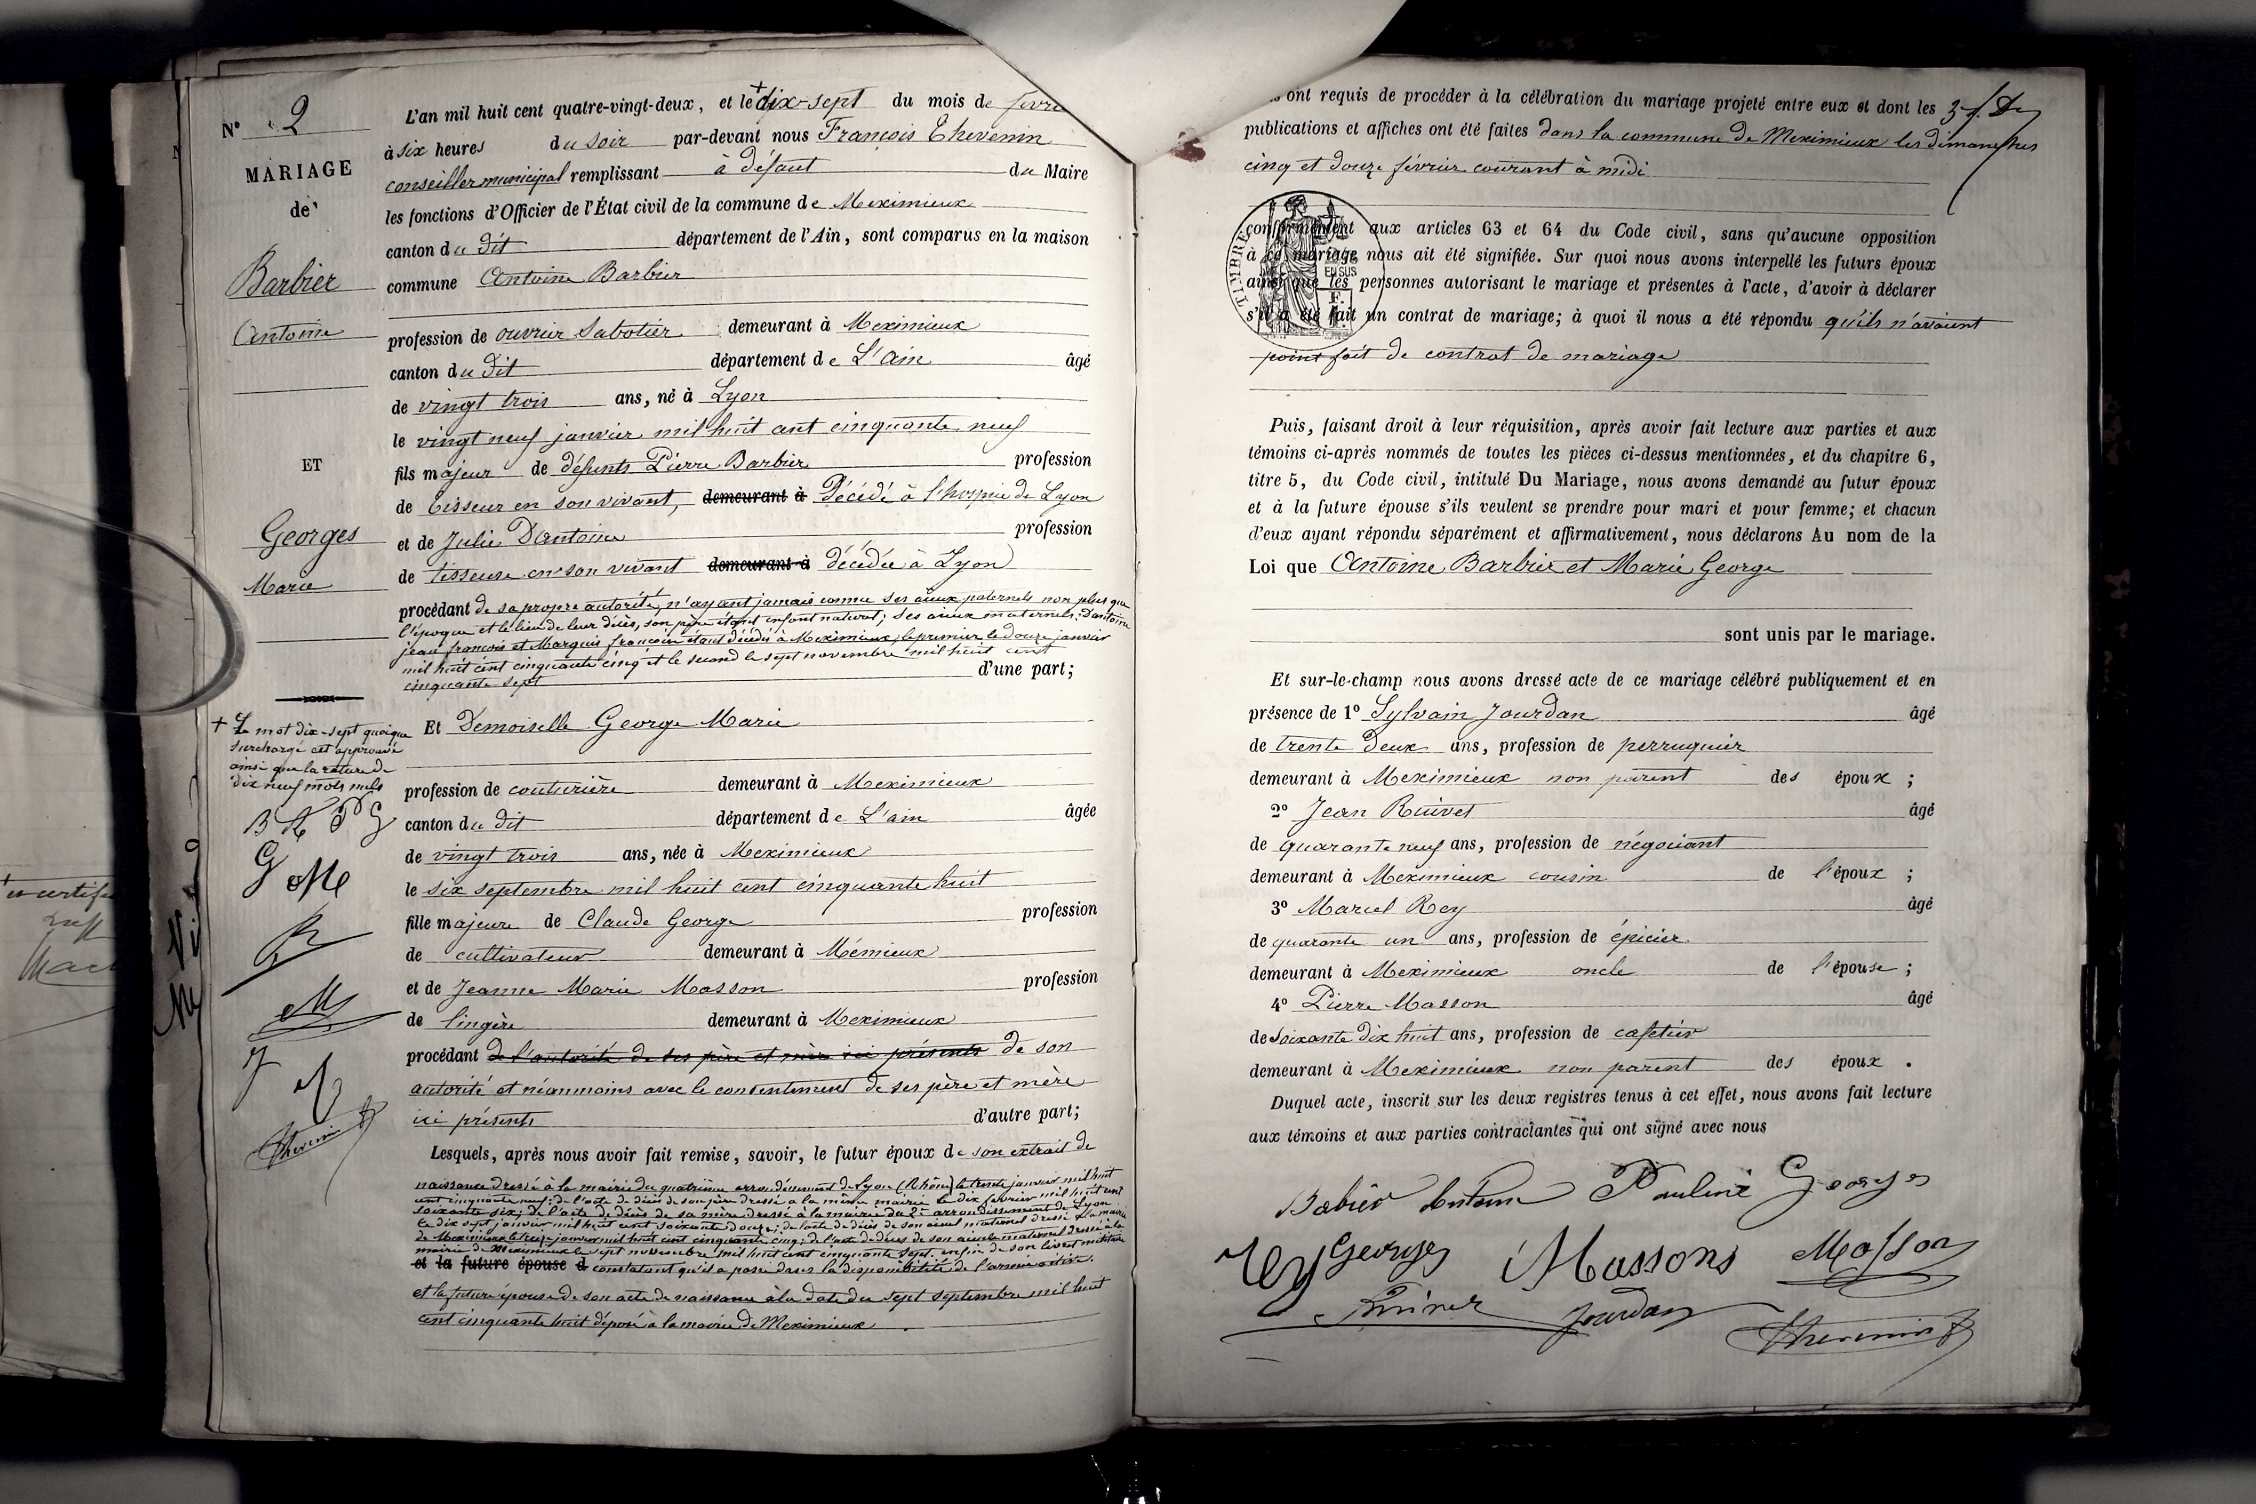 N° 2
MARIAGE
de
Barbier
Antoine
ET
Georges
Marie
+ Le mot dix-sept quoique
surchargé est approuvé
ainsi que la rature de
dix neuf mots nuls
B A P G
G M
R
M
J
Thevenin
L'an mil huit cent quatre-vingt-deux, et le + dix-sept du mois de févri
à six heures du soir par-devant nous François Thevenin
conseiller municipal remplissant à défaut du Maire
les fonctions d'Officier de l'État civil de la commune de Meximieux
canton du dit département de l'Ain, sont comparus en la maison
commune Antoine Barbier
profession de ouvrier Sabotier demeurant à Meximieux
canton du dit département de L'ain âgé
de vingt trois ans, né à Lyon
le vingt neuf janvier mil huit cent cinquante neuf
fils majeur de défunts Pierre Barbier profession
de tisseur en son vivant, demeurant à Décédé à l'hospice de Lyon
et de Julie Dantoine profession
de tisseuse en son vivant demeurant à décédée à Lyon
procédant de sa propre autorité, n'ayant jamais connu ses aieux paternels non plus que
l'époque et le lieu de leur décès, son père étant enfant naturel; ses aieux maternels: Dantoine
jean françois et Marguis françoise étant décédés à Meximieux, le premier le douze janvier
mil huit cent cinquante cinq et le second le sept novembre mil huit cent
cinquante sept d'une part;
Et Demoiselle George Marie
profession de couturière demeurant à Meximieux
canton du dit département de L'ain âgée
de vingt trois ans, née à Meximieux
le six septembre mil huit cent cinquante huit
fille majeure de Claude George profession
de cultivateur demeurant à Mémieux
et de Jeanne Marie Masson profession
de lingère demeurant à Meximieux
procédant de l'autorité de ses père et mère ici présents de son
autorité et néanmoins avec le consentement de ses père et mère
ici présents d'autre part;
Lesquels, après nous avoir fait remise, savoir, le futur époux de son extrait de
naissance dressé à la mairie du quatrième arrondissement de Lyon (Rhône) le trente janvier mil huit
cent cinquante neuf; de l'acte de décès de son père dressé a la même mairie le dix février mil huit cent
soixante six; de l'acte de décès de sa mère dressé à la mairie du 2e arrondissement de Lyon
le dix sept janvier mil huit cent soixante douze; de l'acte de décès de son aieul maternel dressé à la mairie
de Meximieux le treize janvier mil huit cent cinquante cinq; de l'acte de décès de son aieule maternel dressé à la
mairie de Meximieux le sept novembre mil huit cent cinquante sept. enfin de son livret militaire
et la future épouse d constatant qu'il a passé dans la disponibilité de l'armée active.
et la future épouse de son acte de naissance à la date du sept septembre mil huit
cent cinquante huit déposé à la mairie de Meximieux
ont requis de procéder à la célébration du mariage projeté entre eux et dont les
publications et affiches ont été faites dans la commune de Meximieux les dimanches
cinq et douze février courant à midi
TIMBRE
EN SUS
conformément aux articles 63 et 64 du Code civil, sans qu'aucune opposition
à ce mariage nous ait été signifiée. Sur quoi nous avons interpellé les futurs époux
ainsi que les personnes autorisant le mariage et présentes à l'acte, d'avoir à déclarer
s'il a été fait un contrat de mariage; à quoi il nous a été répondu qu'ils n'avaient
point fait de contrat de mariage
Puis, faisant droit à leur réquisition, après avoir fait lecture aux parties et aux
témoins ci-après nommés de toutes les pièces ci-dessus mentionnées, et du chapitre 6,
titre 5, du Code civil, intitulé Du Mariage, nous avons demandé au futur époux
et à la future épouse s'ils veulent se prendre pour mari et pour femme; et chacun
d'eux ayant répondu séparément et affirmativement, nous déclarons Au nom de la
Loi que Antoine Barbier et Marie George
sont unis par le mariage.
Et sur-le-champ nous avons dressé acte de ce mariage célébré publiquement et en
présence de 1° Sylvain Jourdan âgé
de trente deux ans, profession de perruquier
demeurant à Meximieux non parent des époux ;
2° Jean Ruivet âgé
de quarante neuf ans, profession de négociant
demeurant à Meximieux cousin de l'époux ;
3° Marcel Rey âgé
de quarante un ans, profession de épicier
demeurant à Meximieux oncle de l'épouse ;
4° Pierre Masson âgé
de Soixante dix huit ans, profession de cafetier
demeurant à Meximieux non parent des époux .
Duquel acte, inscrit sur les deux registres tenus à cet effet, nous avons fait lecture
aux témoins et aux parties contractantes qui ont signé avec nous
Babier Antoine Pauline Georges
Rey Georges Massons Masson
Ruivet Jourdan Thevenin